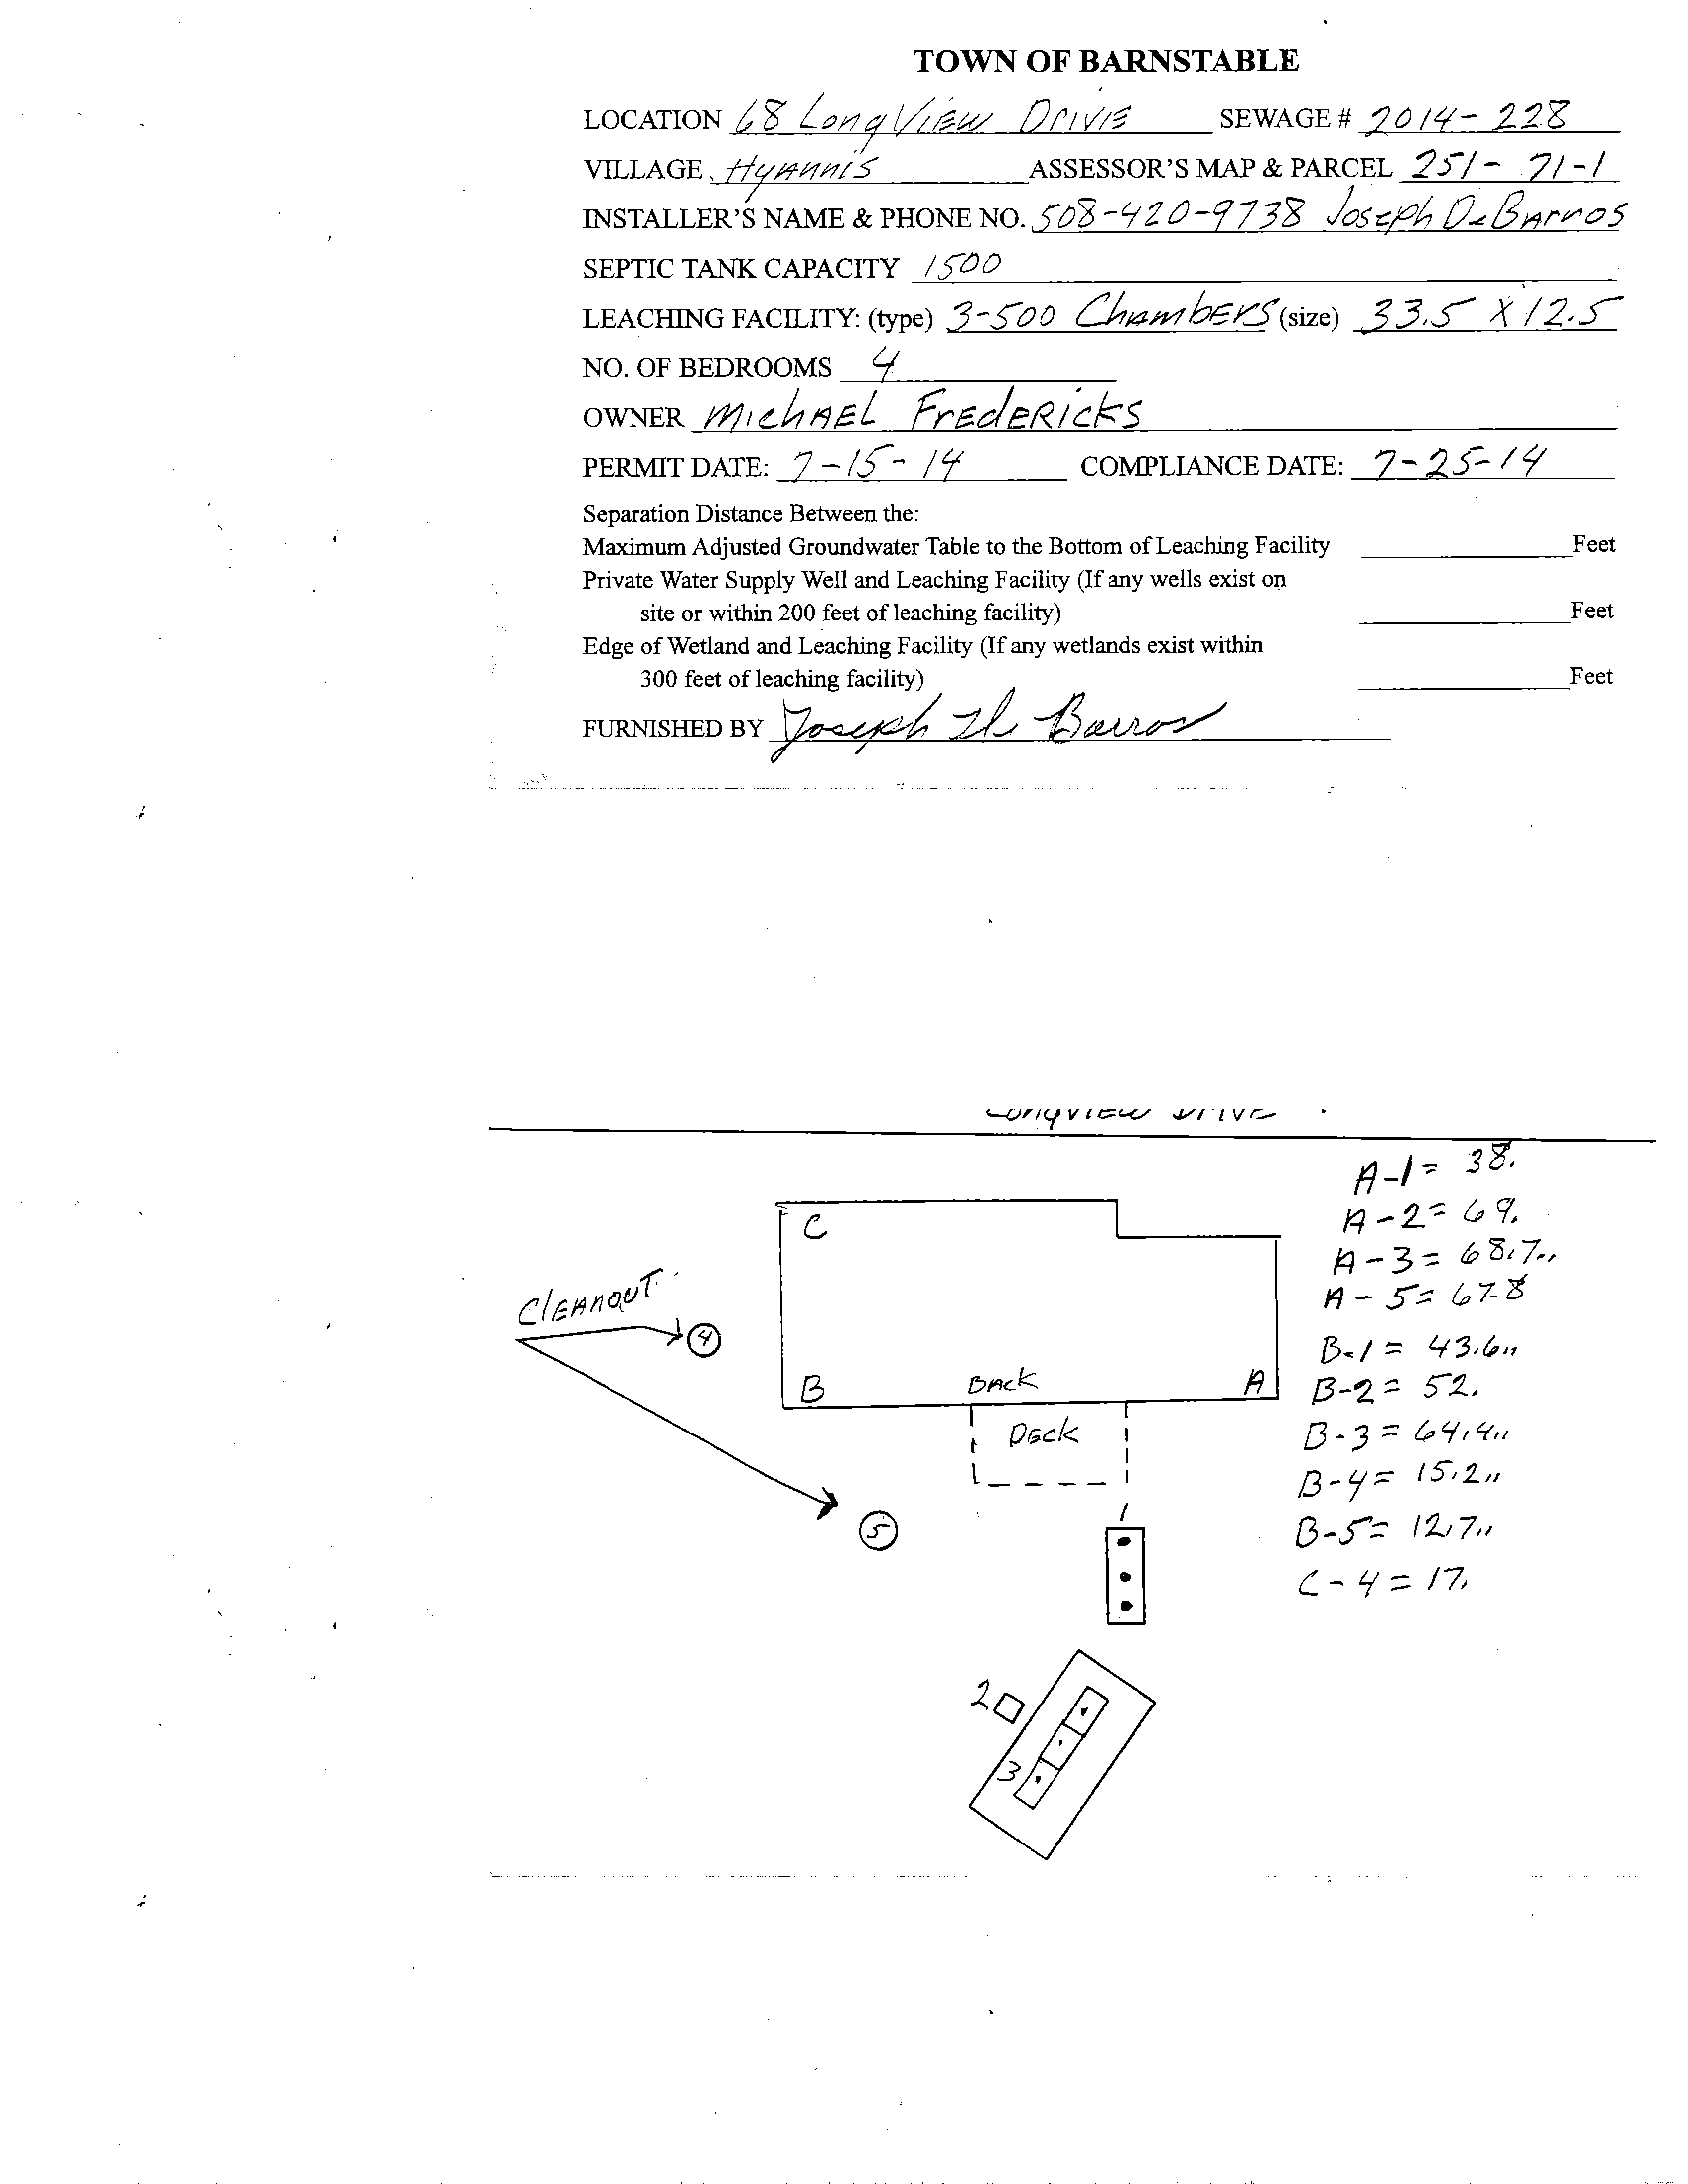 TOWN OF BARNSTABLE
LOCATION 68 LongView Drive SEWAGE # 2014-228
VILLAGE Hyannis ASSESSOR'S MAP & PARCEL 251-71-1
INSTALLER'S NAME & PHONE NO. 508-420-9738 Joseph DeBarros
SEPTIC TANK CAPACITY 1500
LEACHING FACILITY: (type) 3-500 Chambers (size) 33.5 X 12.5
NO. OF BEDROOMS 4
OWNER Michael Fredericks
PERMIT DATE: 7-15-14 COMPLIANCE DATE: 7-25-14
Separation Distance Between the:
Maximum Adjusted Groundwater Table to the Bottom of Leaching Facility Feet
Private Water Supply Well and Leaching Facility (If any wells exist on
site or within 200 feet of leaching facility) Feet
Edge of Wetland and Leaching Facility (If any wetlands exist within
300 feet of leaching facility) Feet
FURNISHED BY Joseph De Barros
Longview Drive
A-1 = 38.
C
A-2 = 69.
A-3 = 68.7"
Cleanout
A-5 = 67-8
4
B-1 = 43.6"
B Back A
B-2 = 52.
Deck
B-3 = 64.4"
B-4 = 15.2"
1
5
B-5 = 12.7"
C-4 = 17.
2
3